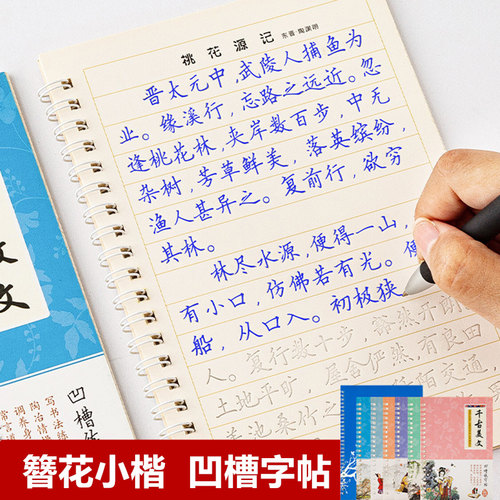 桃花源记
东晋·陶渊明
晋太元中,武陵人捕鱼为
业。缘溪行,忘路之远近。忽
逢桃花林,夹岸数百步,中无
杂树,芳草鲜美,落英缤纷,
渔人甚异之。复前行,欲穷
其林。
林尽水源,便得一山,
有小口,仿佛若有光。便
船,从口入。初极狭
人。复行数十步 豁然开朗
土地平旷,屋舍俨然,有良田
美池桑竹之 交通,
文
凹槽
千古美文
簪花小楷 凹槽字帖